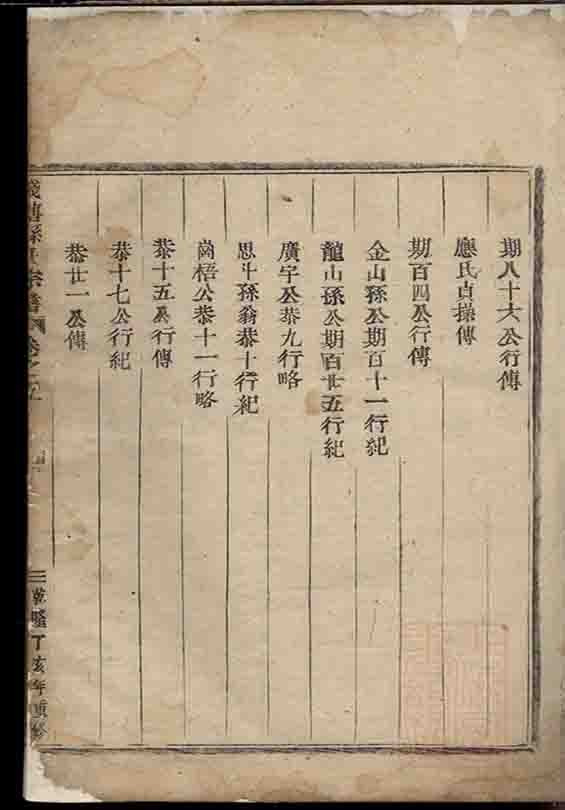 期八十六公行傳
應氏貞操傳
期百四公行傳
金山孫公期百十一行紀
龍山孫公期百廿五行紀
廣宇公恭九行略
思斗孫翁恭十行紀
崗梧公恭十一行略
恭十五公行傳
恭十七公行紀
恭廿一公傳
孫氏宗譜 卷之五
三 乾隆丁亥年重修